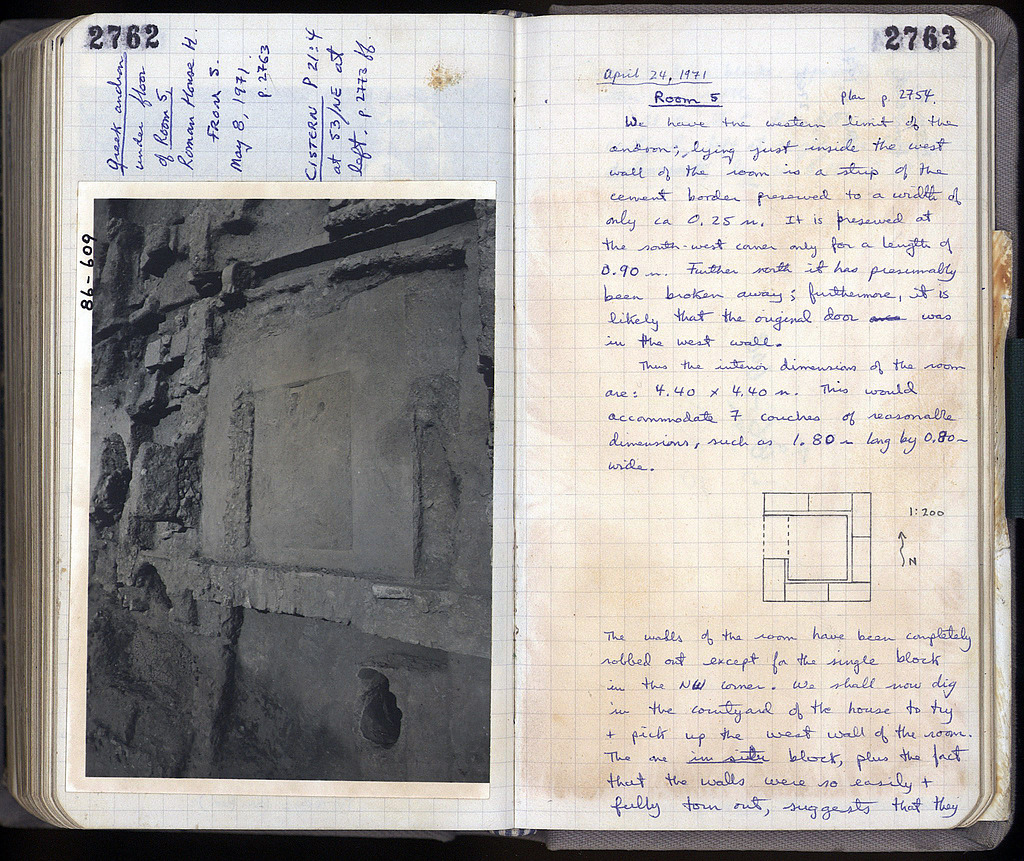 2762
Greek andron
under floor
of Room 5,
Roman House H.
From S.
May 8, 1971
p. 2763
CISTERN P 21:4
at 53/NE at
left. p. 2773 ff.
86-609
2763
April 24, 1971
Room 5
plan p. 2754.
We have the western limit of the
andron; lying just inside the west
wall of the room is a strip of the
cement border preserved to a width of
only ca 0.25 m. It is preserved at
the south-west corner only for a length of
0.90 m. Further north it has presumably
been broken away; furthermore, it is
likely that the original door was
in the west wall.
Thus the interior dimensions of the room
are: 4.40 x 4.40 m. This would
accommodate 7 couches of reasonable
dimensions, such as 1.80 m long by 0.80 m
wide.
1:200
N
The walls of the room have been completely
robbed out except for the single block
in the NW corner. We shall now dig
in the courtyard of the house to try
+ pick up the west wall of the room.
The one in situ block, plus the fact
that the walls were so easily +
fully torn out, suggests that they